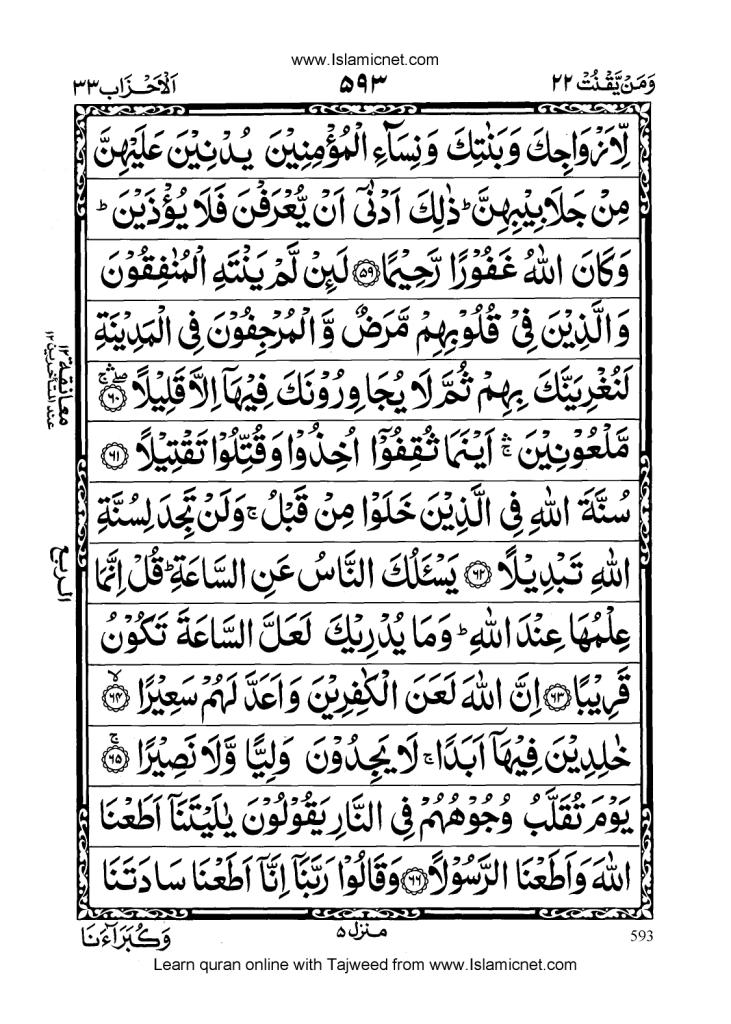 www.Islamicnet.com
وَمَنْ يَّقْنُتْ ۲۲
۵۹۳
اَلْاَحْزَاب ۳۳
لِّاَزْوَاجِكَ وَبَنٰتِكَ وَنِسَآءِ الْمُؤْمِنِيْنَ يُدْنِيْنَ عَلَيْهِنَّ
مِنْ جَلَابِيْبِهِنَّ ؕ ذٰلِكَ اَدْنٰۤى اَنْ يُّعْرَفْنَ فَلَا يُؤْذَيْنَ ؕ
وَكَانَ اللّٰهُ غَفُوْرًا رَّحِيْمًا ﴿۵۹﴾ لَئِنْ لَّمْ يَنْتَهِ الْمُنٰفِقُوْنَ
وَالَّذِيْنَ فِيْ قُلُوْبِهِمْ مَّرَضٌ وَّالْمُرْجِفُوْنَ فِى الْمَدِيْنَةِ
لَنُغْرِيَنَّكَ بِهِمْ ثُمَّ لَا يُجَاوِرُوْنَكَ فِيْهَاۤ اِلَّا قَلِيْلًا ﴿۶۰﴾
مَّلْعُوْنِيْنَ ۛۚ اَيْنَمَا ثُقِفُوْۤا اُخِذُوْا وَقُتِّلُوْا تَقْتِيْلًا ﴿۶۱﴾
سُنَّةَ اللّٰهِ فِى الَّذِيْنَ خَلَوْا مِنْ قَبْلُ ۚ وَلَنْ تَجِدَ لِسُنَّةِ
اللّٰهِ تَبْدِيْلًا ﴿۶۲﴾ يَسْئَلُكَ النَّاسُ عَنِ السَّاعَةِ ؕ قُلْ اِنَّمَا
عِلْمُهَا عِنْدَ اللّٰهِ ؕ وَمَا يُدْرِيْكَ لَعَلَّ السَّاعَةَ تَكُوْنُ
قَرِيْبًا ﴿۶۳﴾ اِنَّ اللّٰهَ لَعَنَ الْكٰفِرِيْنَ وَاَعَدَّ لَهُمْ سَعِيْرًا ۙ﴿۶۴﴾
خٰلِدِيْنَ فِيْهَاۤ اَبَدًا ۚ لَا يَجِدُوْنَ وَلِيًّا وَّلَا نَصِيْرًا ۚ﴿۶۵﴾
يَوْمَ تُقَلَّبُ وُجُوْهُهُمْ فِى النَّارِ يَقُوْلُوْنَ يٰلَيْتَنَاۤ اَطَعْنَا
اللّٰهَ وَاَطَعْنَا الرَّسُوْلَا ﴿۶۶﴾ وَقَالُوْا رَبَّنَاۤ اِنَّاۤ اَطَعْنَا سَادَتَنَا
معانقة ۱۲
عند المتاخرين ۱۲
الربع
وَكُبَرَآءَنَا
منزل ۵
593
Learn quran online with Tajweed from www.Islamicnet.com